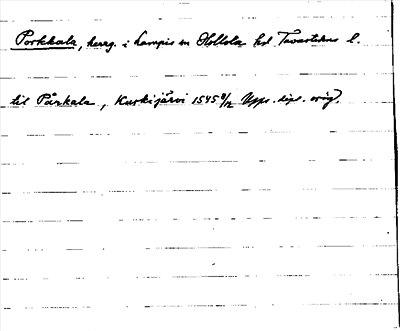 Porkkala, herrg. i Lampis sn Hollola hd Tavastehus l.
til Pårkala, Kurkijärvi 1545 9/12 Upps. dipl. orig.